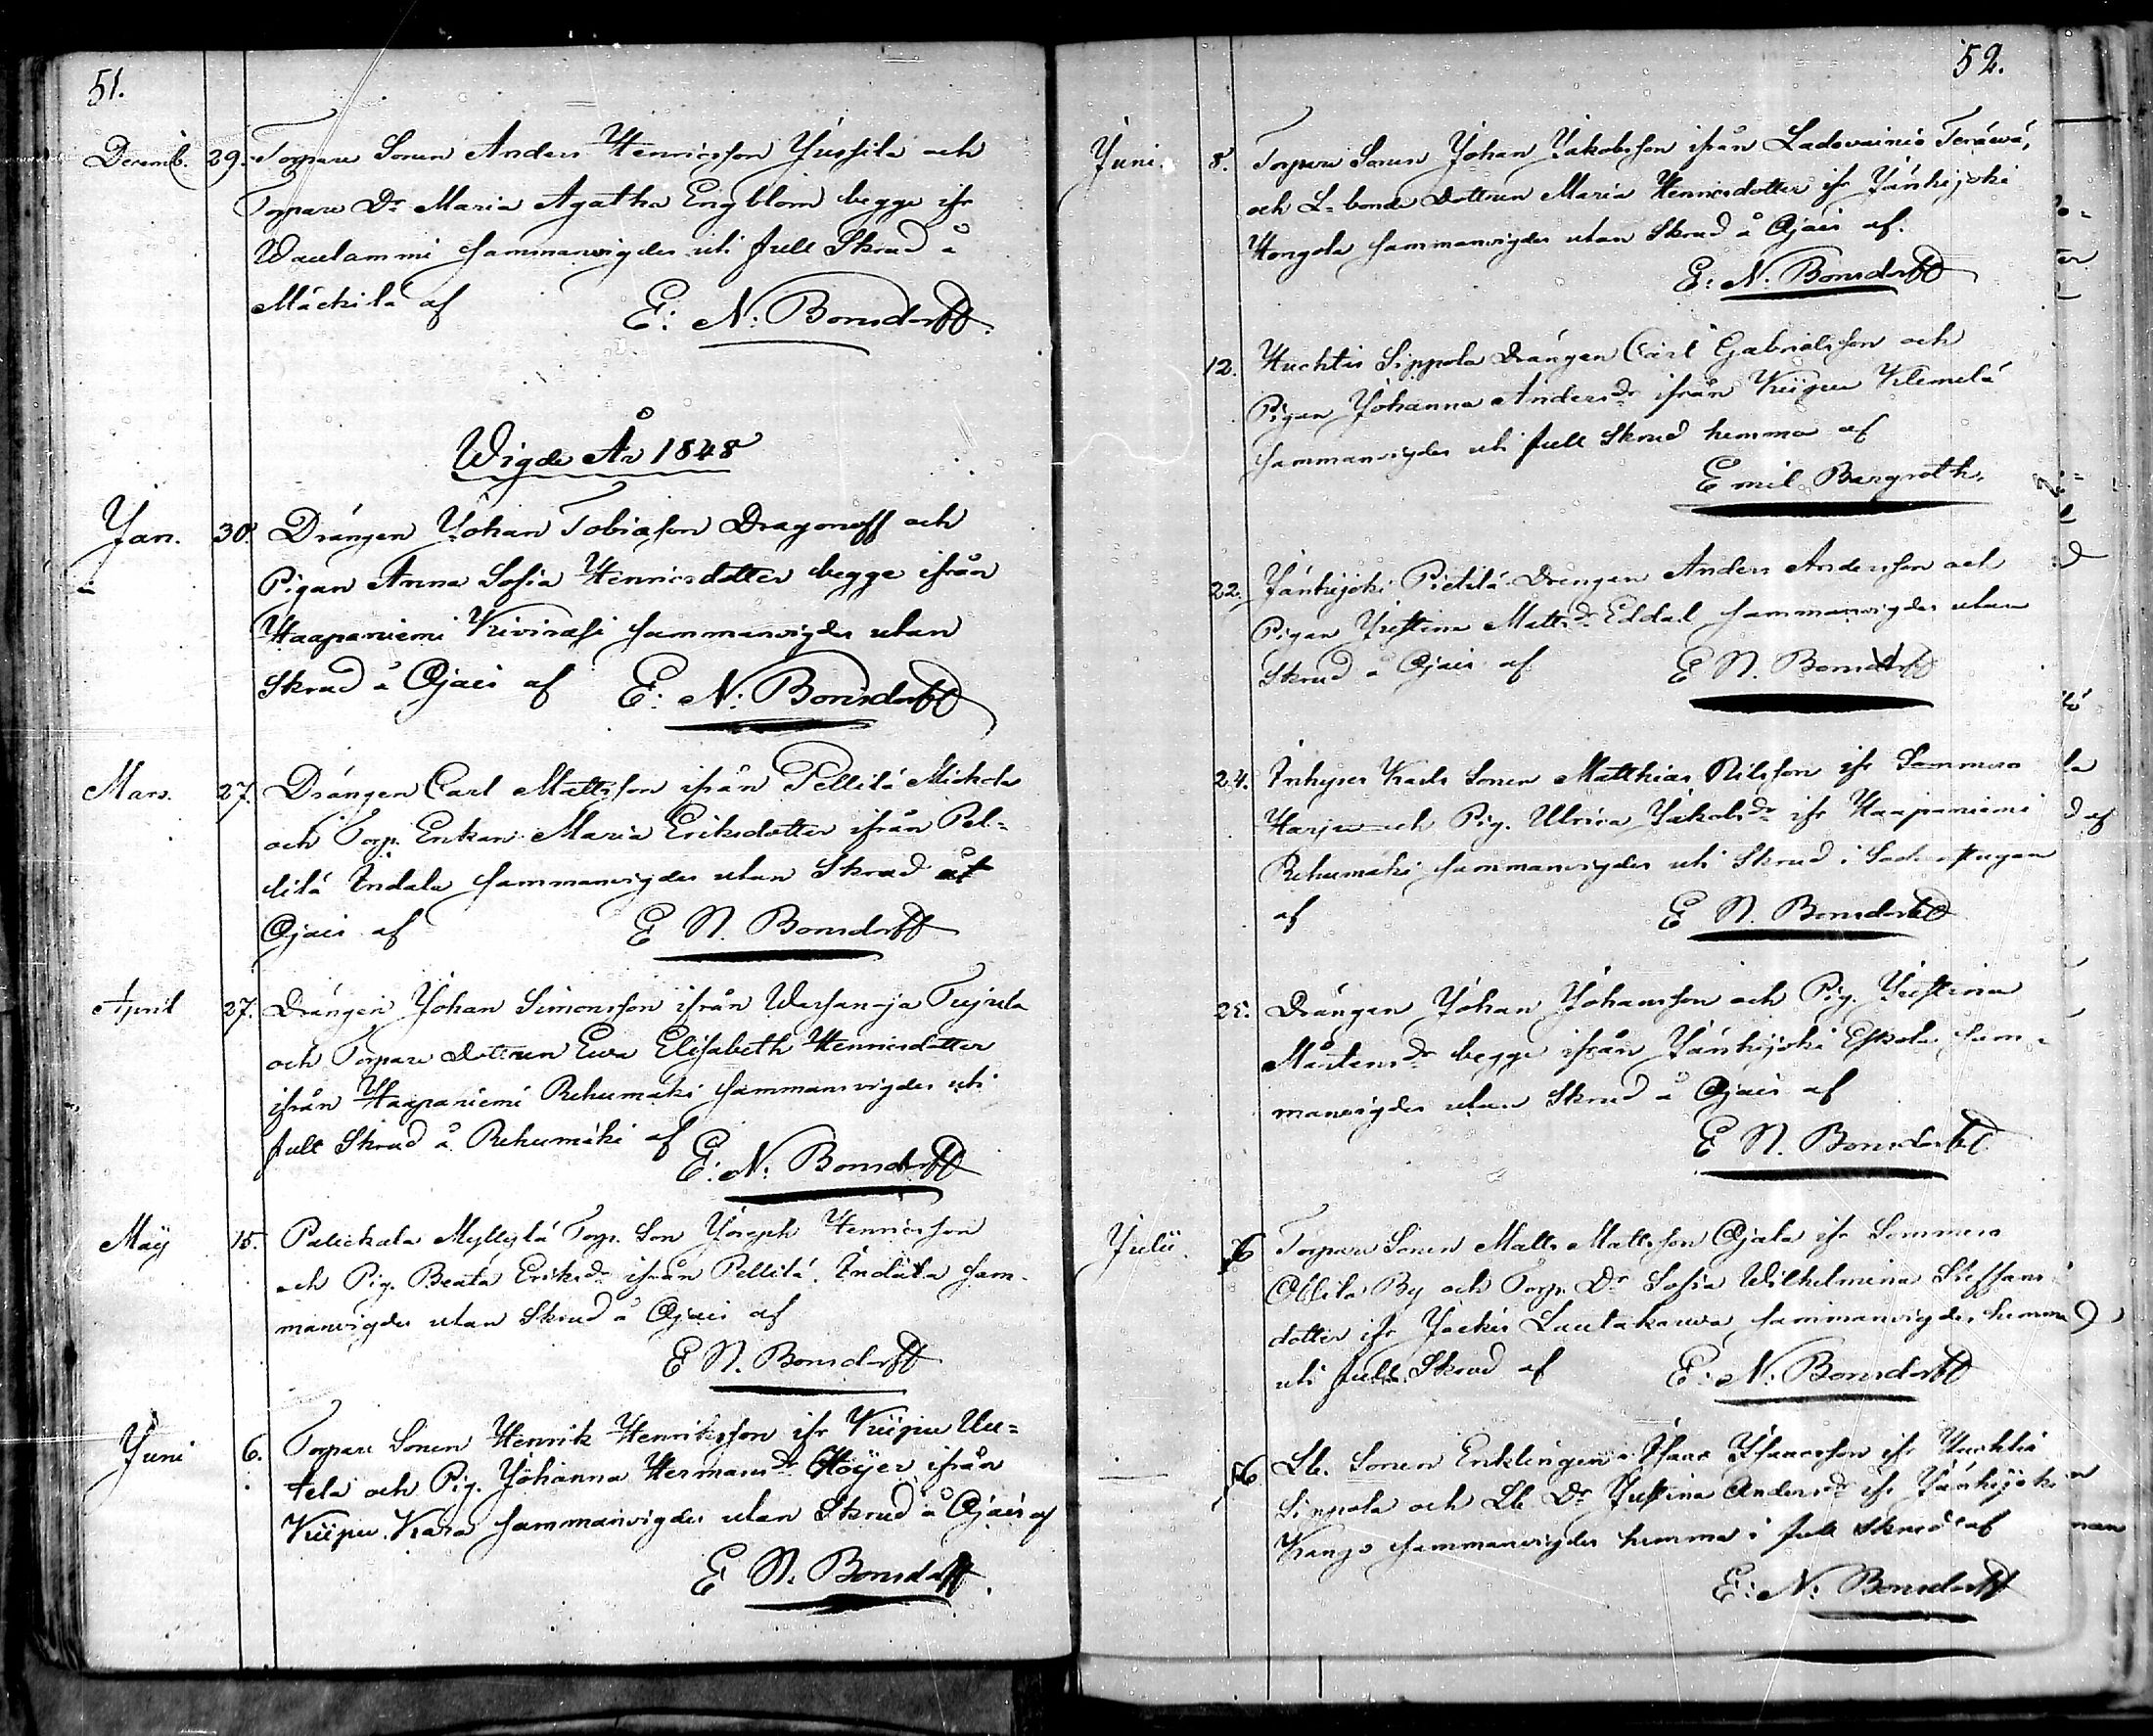 51.
Decemb. 29. Torpare Sonen Anders Henricsson Jussila och
Torpare Dr Maria Agatha Engblom begge ifr
Waulammi sammanvigdes uti full Skrud å
Mäckilä af E: N: Bonsdorff.
Wigde År 1848
Jan. 30. Drängen Johan Tobiasson Dragonoff och
Pigan Anna Sofia Henricsdotter begge ifrån
Haapaniemi Kivirasi sammanvigdes utan
Skrud å Ojais af E: N: Bonsdorff
Mars. 27. Drängen Carl Mattsson ifrån Pellilä Mickola
och Torp. Enkan Maria Eriksdotter ifrån Pel-
lilä Indala sammanvigdes utan Skrud åt
Ojais af E N. Bonsdorff
April 27. Drängen Johan Simonsson ifrån Warsanoja Tujula
och Torpare dottren Ewa Elisabeth Henricsdotter
ifrån Haapaniemi Rehumäki sammanvigdes uti
full Skrud å Rehumäki af E: N: Bonsdorff
Maÿ 15. Palickala Myllylä Torp. Son Joseph Henricsson
och Pig. Beata Eriksdr ifrån Pellilä Indala sam-
manvigdes utan Skrud å Ojais af
E N. Bonsdorff
Juni 6. Torpare Sonen Henrik Henriksson ifr Kiipu Uu=
tela och Pig. Johanna Hermansdr Höijer ifrån
Kiipu Kara sammanvigdes utan Skrud å Ojais af
E N. Bonsdorff.
52.
Juni. 8. Torpare Sonen Johan Jakobsson ifrån Ladovainio Teräwä,
och L. bonde Dottren Maria Henricsdotter ifr Jänhijoki
Hongola sammanvigdes utan Skrud å Ojais af.
E: N: Bonsdorff
12. Huchtis Sippola Drängen Carl Gabrielsson och
Pigan Johanna Andersdr ifrån Kiipu Klemelä
sammanvigdes uti full Skrud hemma af
Emil Bergroth.
22. Jänhijoki Pietilä Drengen Anders Andersson och
Pigan Justina Mattsdr Eddal sammanvigdes utan
Skrud å Ojais af E N. Bonsdorff
24. Inhyses Karls Sonen Matthias Nilsson ifr Sommero
Harju och Pig. Ulrica Jakobsdr ifr Haapaniemi
Rehumäki sammanvigdes uti Skrud i Sockenstugan
af E N. Bonsdorff
25. Drängen Johan Johansson och Pig. Justina
Mårtensdr begge ifrån Jänhijoki Eskola sam-
manvigdes utan Skrud å Ojais af
E N. Bonsdorff
Julii. 6 Torpare Sonen Matts Mattsson Ojala ifr Sommero
Ollila By och Torp. Dr Sofia Wilhelmina Steffans
dotter ifr Jackis Lautakauva sammanvigdes hemma
uti full Skrud af E: N: Bonsdorff
16. Lb. Sonen Enklingen Isaac Isaacsson ifr Huchtis
Sippola och Lb Dr Justina Andersdr ifr Jänhijoki
Kango sammanvigdes hemma i full skrud af
E: N: Bonsdorff